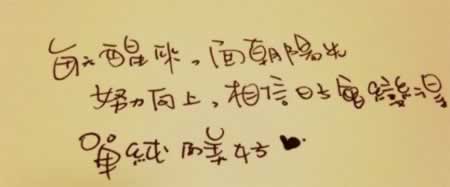 每天醒來，面朝陽光
努力向上，相信日子會變得
單純的美好